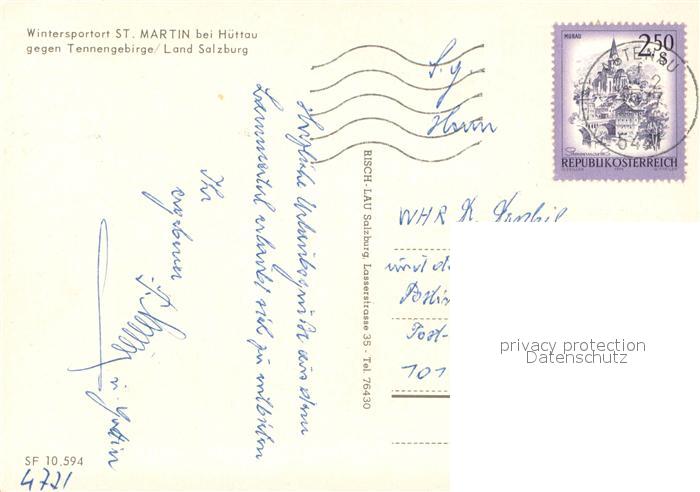 Wintersportort ST. MARTIN bei Hüttau
gegen Tennengebirge/Land Salzburg
MURAU
2.50
S
Steiermark
REPUBLIK ÖSTERREICH
1974
S.g.
Herrn
WHR
und
Post-
101
Herzliche Urlaubsgrüße aus dem
Lammertal erlaubt sich zu entbieten
Ihr
ergebener
u. Gattin
RISCH-LAU Salzburg, Lasserstrasse 35 · Tel. 76430
privacy protection
Datenschutz
SF 10.594
4771